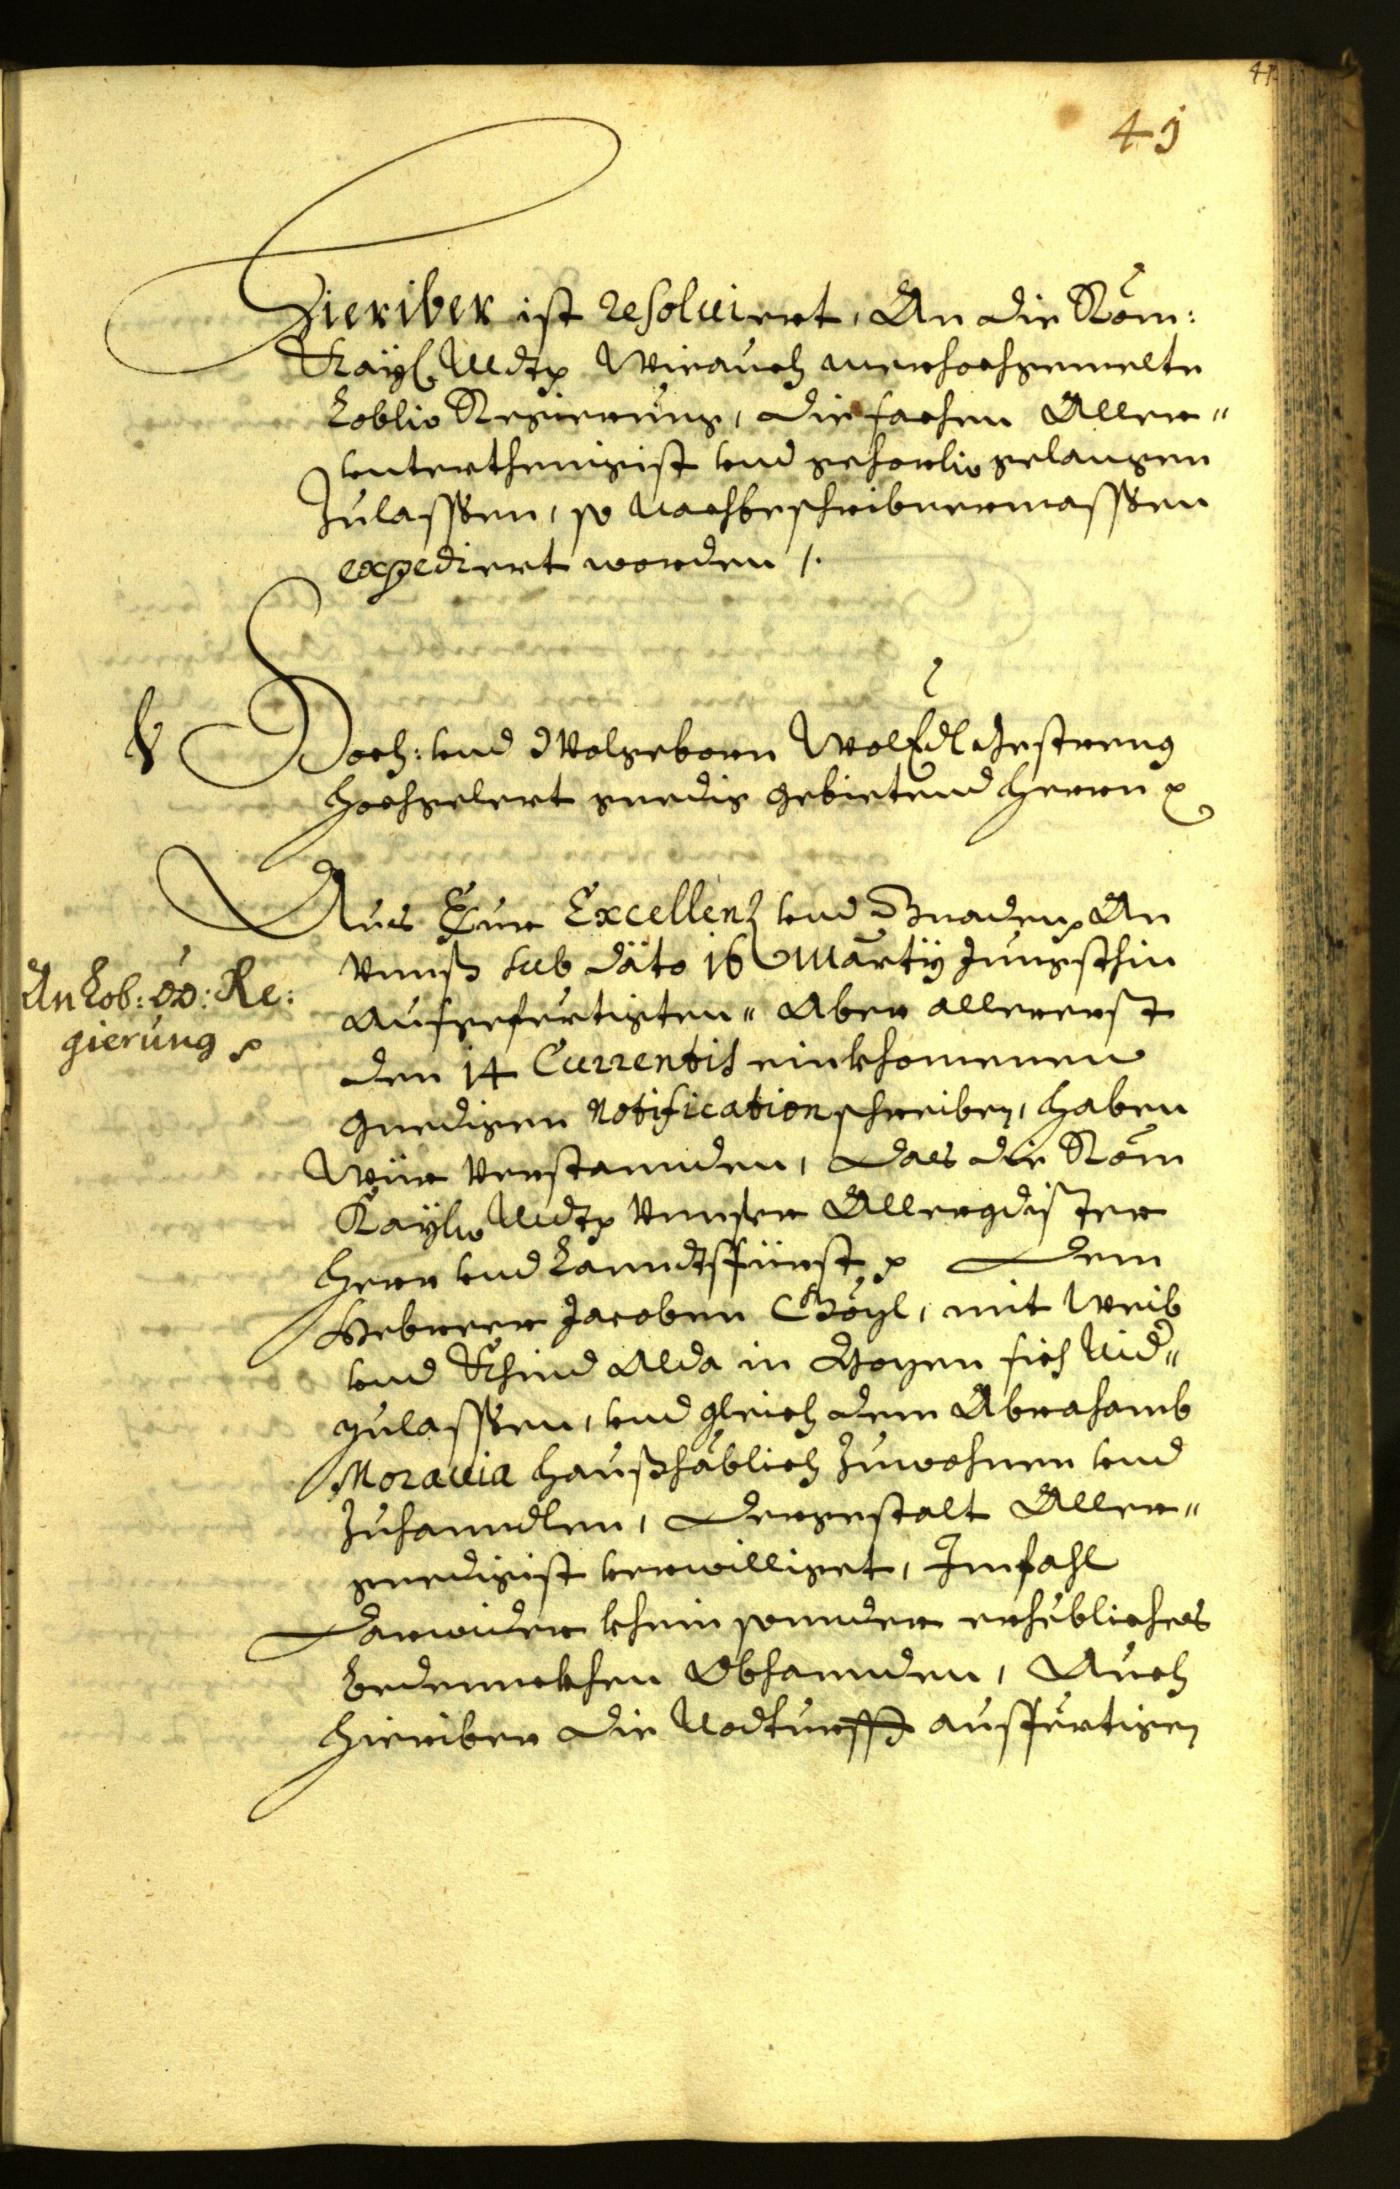 41
41
Hieriber ist resoluiert, An die Röm:
Kayl Mtt. Wie auch mer hochgemelte
Löblic Regierung, die sachen Aller„
unterthenigist und gehorlic gelangen
Zulassßen, so Nachbeschribnermassßen
expediert worden /.
Hoch: und Wolgeborn WolEdl Gestreng
Hochgelert gnedig gebietend herrn
Aus Eur Excellenz und Gnaden An
Unnß sub dato 16 Martÿ Jüngsthin
Ausgefertigten„ Aber allererst
den 14 Currentis einkhomenen
gnedigen Notification schreiben, haben
Wür Verstannden, Das die Röm
Kaylic Mtt. Unnser Allergdister
Herr und Lanndtsfürst Dem
Hebreer Jacoben Gögl, mit Weib
und Khind Alda in Bozen sich Nid„
zulassßen, und gleich dem Abrahamb
Morauia Haußhäblich Zuwohnen und
Zuhanndlen, Dergestalt Aller„
gnedigist verwilliget, Imfahl
Darwider khein sonnder erhebliches
Bedennckhen Obhannden, Auch
Hieriber die Nodturfft ausfertigen
An Lob: OÖ: Re:
gierung